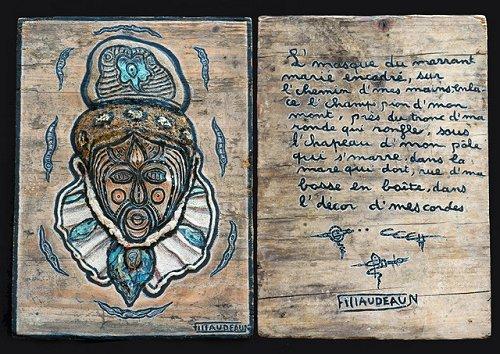 FILLAUDEAUN
L'masque du marrant
marie encadré, sur
l'chemin d'mes mains, enla
ce l'champ pion d'mon
mont, près du tronc d'ma
ronde qui ronfle, sous
l'chapeau d'mon pôle
qui s'marre, dans la
mare qui dort, rue d'ma
bosse en boîte, dans
l'décor d'mes cordes
FILLAUDEAUN